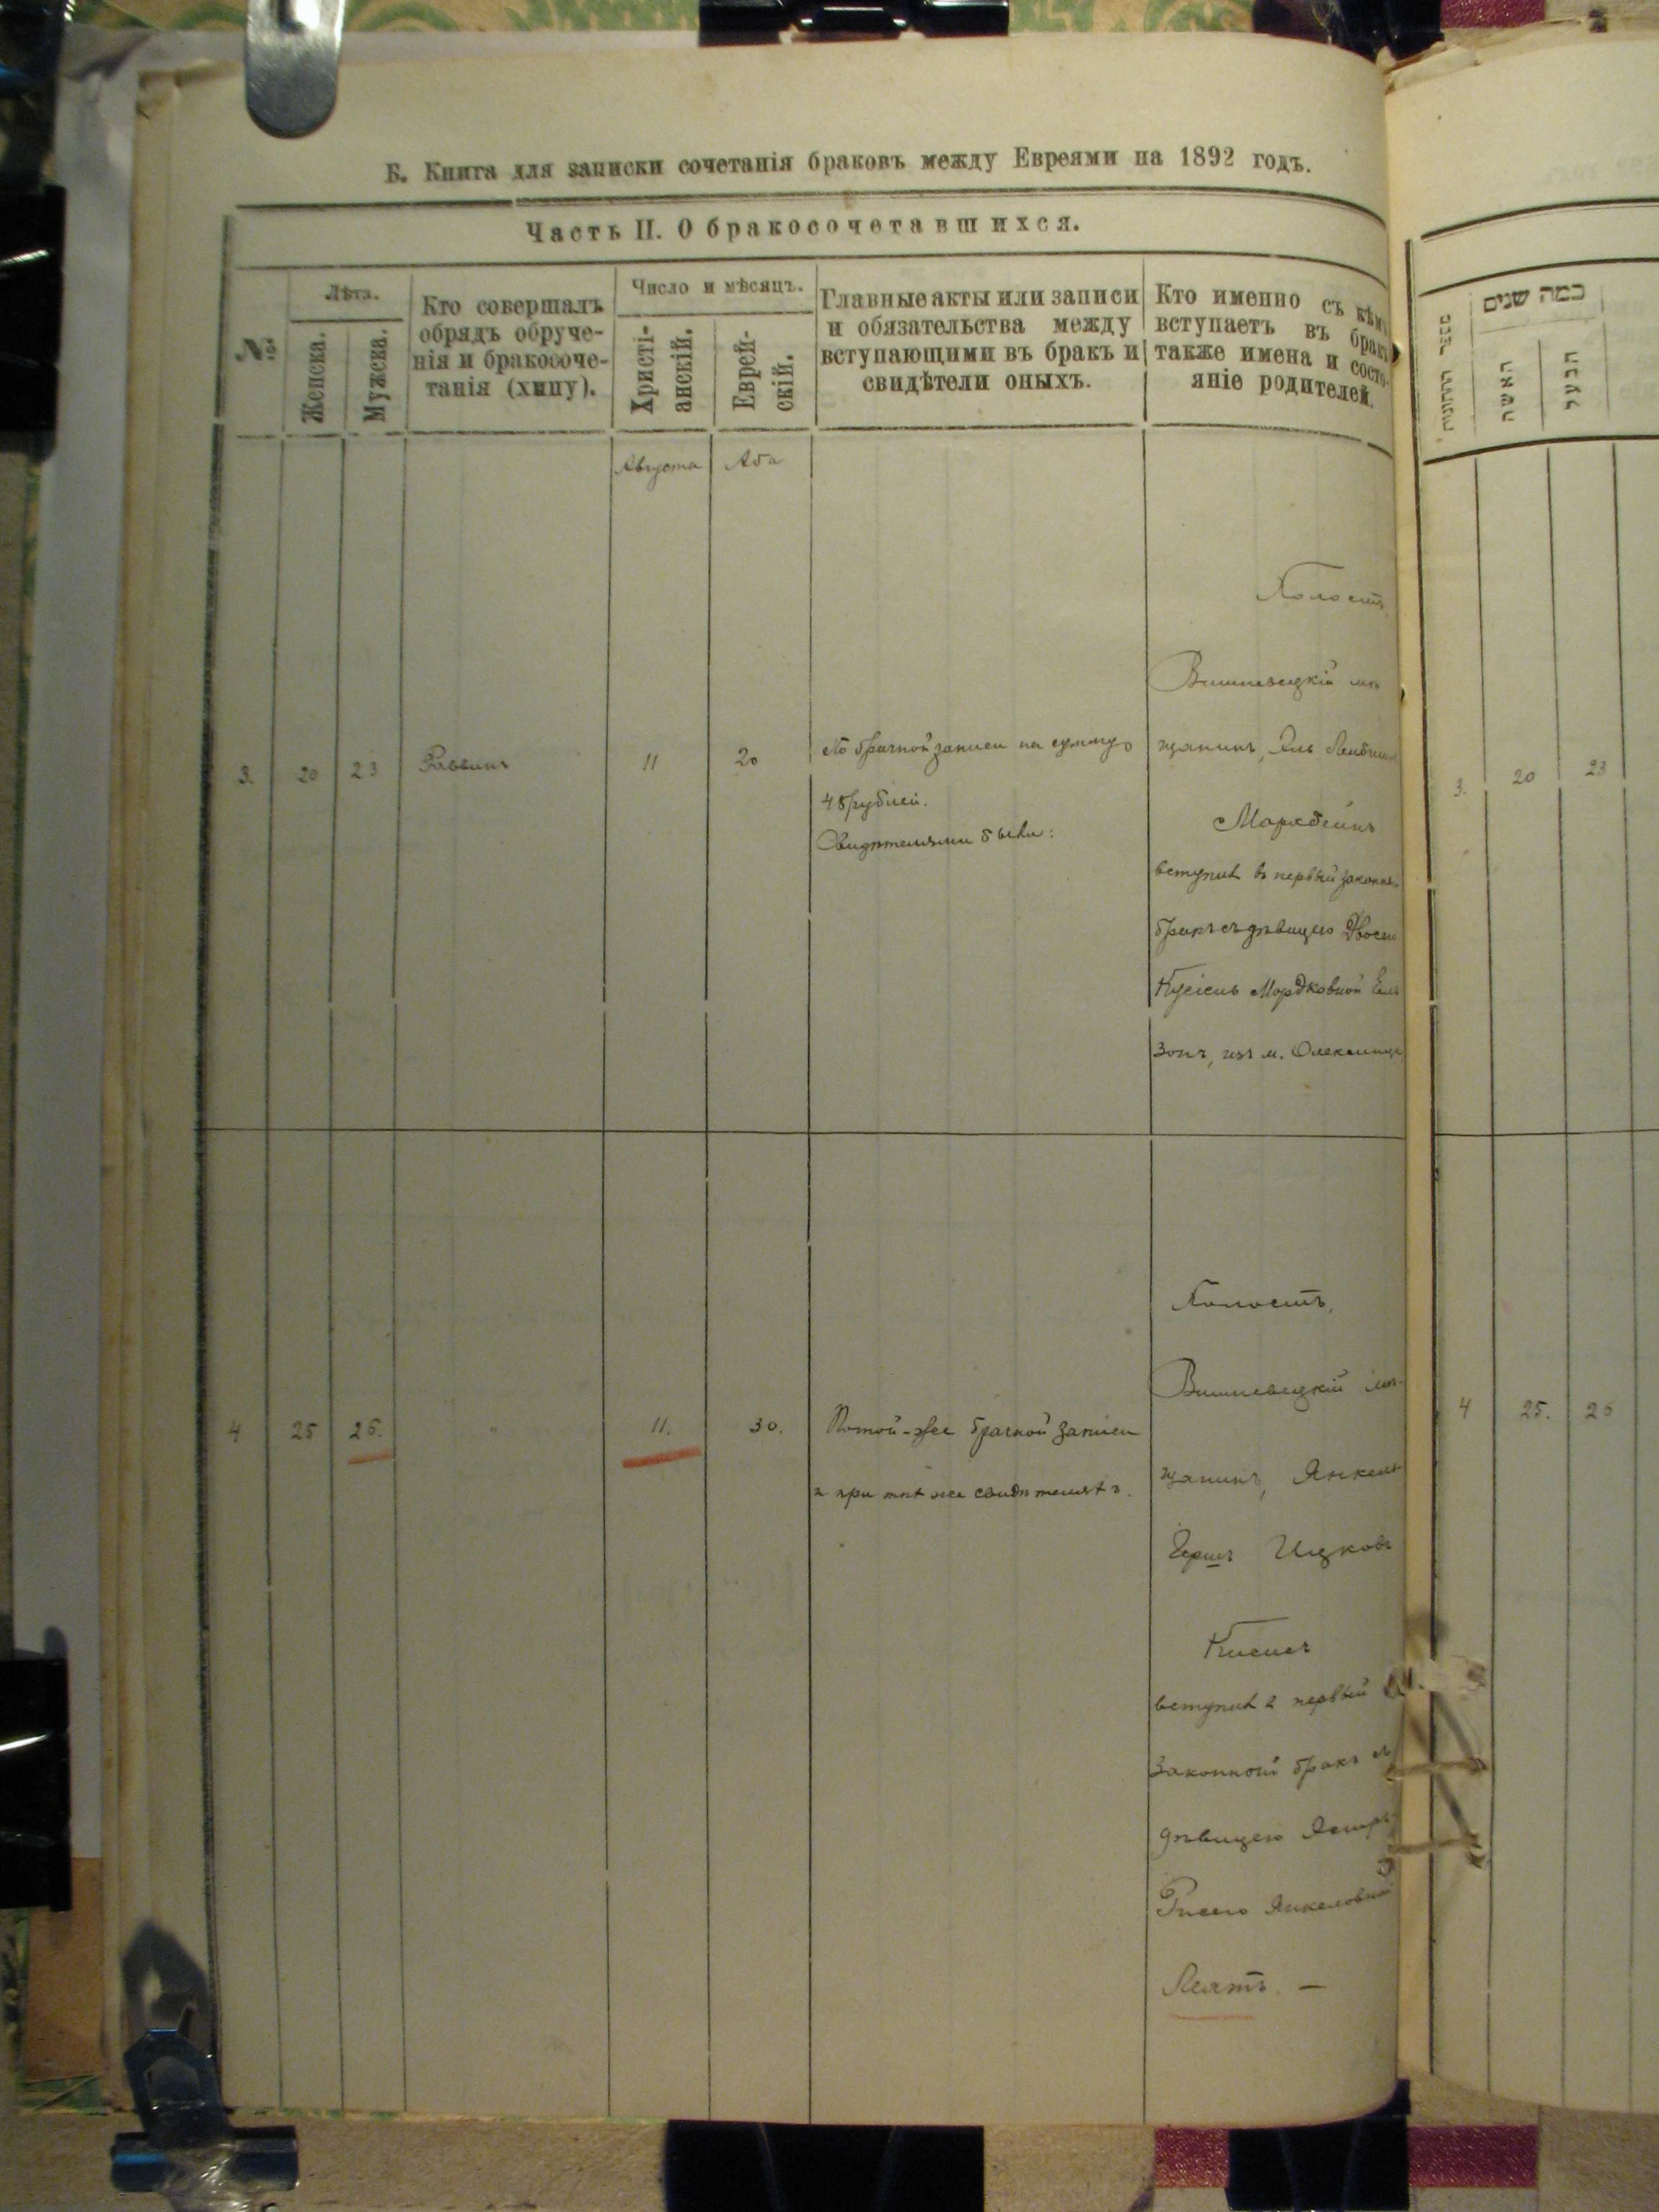 Б. Книга для записки сочетанія браковъ между Евреями на 1892 годъ.
Часть II. О бракосочетавшихся.
№
Лѣта.
Женска.
Мужска.
Кто совершалъ
обрядъ обруче-
нія и бракосоче-
танія (хипу).
Число и мѣсяцъ.
Христі-
анскій.
Еврей-
скій.
Главные акты или записи
и обязательства между
вступающими въ бракъ и
свидѣтели оныхъ.
Кто именно съ кѣмъ
вступаетъ въ бракъ
также имена и состо-
яніе родителей.
Августа Аба
3. 20 23 Раввинъ 11 20
По брачной записи на сумму
48 рублей.
Свидѣтелями были:
Холостъ,
Вишневецкій мѣ
щанинъ,
вступилъ въ первый законн
бракъ съ дѣвицею
Мордковной
зонъ, изъ м.
4 25 26. " 11. 30.
По той-же брачной записи
и при тѣхъ же свидѣтеляхъ.
Холостъ,
Вишневецкій мѣ-
щанинъ, Янкель-
Гершъ Ицковъ
вступилъ въ первый
законной бракъ съ
дѣвицею
Янкеловной
כמה שנים
האשה
הבעל
3. 20 23
4 25. 26